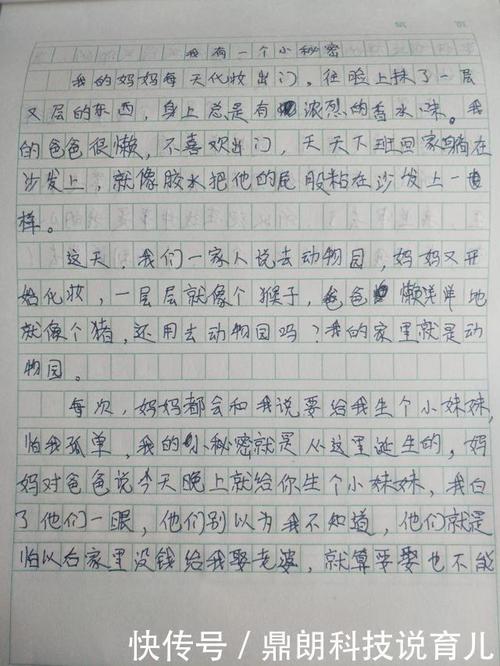 我有一个小秘密
我的妈妈每天化妆出门，往脸上抹了一层
又层的东西，身上总是有浓烈的香水味。我
的爸爸很懒，不喜欢出门，天天下班回家躺在
沙发上，就像胶水把他的屁股粘在沙发上一
样。
这天，我们一家人说去动物园，妈妈又开
始化妆，一层层就像个猴子，爸爸懒洋洋地
就像个猪，还用去动物园吗？我的家里就是动
物园。
每次，妈妈都会和我说要给我生个小妹妹，
怕我孤单，我的小秘密就是从这里诞生的，妈
妈对爸爸说今天晚上就给你生个小妹妹，我白
了他们一眼，他们别以为我不知道，他们就是
怕以后家里没钱给我娶老婆，就算要娶也不能
快传号／鼎朗科技说育儿